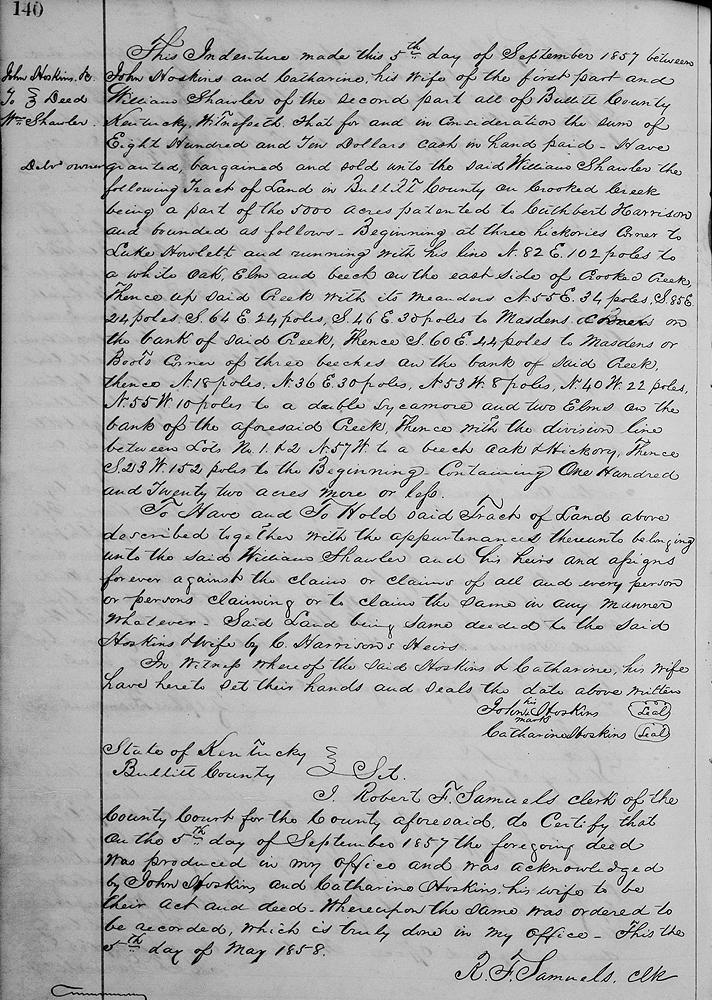 140
John Hoskins &c
To } Deed
Wm Shawler.
Delv owner
This Indenture made this 5th day of September 1857 between
John Hoskins and Catharine, his wife of the first part and
William Shawler of the second part all of Bullitt County
Kentucky, Witnesseth. That for and in Consideration the sum of
Eight Hundred and Ten Dollars cash in hand paid - Have
granted, bargained and sold unto the said William Shawler the
following Tract of Land in Bullitt County on Crooked Creek
being a part of the 5000 acres patented to Cuthbert Harrison
and bounded as follows - Beginning at three hickories Corner to
Luke Howlett and running with his line N. 82 E. 102 poles to
a white Oak, Elm and beech on the east side of Crooked Creek,
Thence up said Creek with its meanders N 55 E. 34 poles, S. 85 E.
24 poles. S. 64 E. 24 poles, S. 46 E. 30 poles to Masdens Corner on
the bank of said Creek, Thence S. 60 E. 44 poles to Masdens or
Boots Corner of three beeches on the bank of said Creek,
thence N 18 poles, N. 36 E. 30 poles, N 53 W. 8 poles, N. 40 W. 22 poles,
N. 55 W. 10 poles to a double Sycamore and two Elms on the
bank of the aforesaid Creek, Thence with the division line
between Lots No. 1. & 2 N. 57 W. to a beech Oak & Hickory, Thence
S. 23 W. 152 poles to the Beginning - Containing One Hundred
and Twenty two acres more or less.
To Have and To Hold said Tract of Land above
described together with the appurtenances thereunto belonging
unto the said William Shawler and his heirs and assigns
forever against the claim or claims of all and every person
or persons claiming or to claim the same in any manner
whatever - Said Land being same deeded to the said
Hoskins & wife by C. Harrison's Heirs
In Witness whereof the said Hoskins & Catharine, his wife
have hereto set their hands and seals the date above written
John his mark Hoskins (Seal)
Catharine Hoskins (Seal)
State of Kentucky
Bullitt County } Sct.
I. Robert F. Samuels clerk of the
County Court for the County aforesaid, do Certify that
on the 5th day of September 1857 the foregoing deed
was produced in my office and was acknowledged
by John Hoskins and Catharine Hoskins, his wife to be
their act and deed. Whereupon the same was ordered to
be recorded, which is truly done in my office - This the
5th day of May 1858.
R. F. Samuels, clk